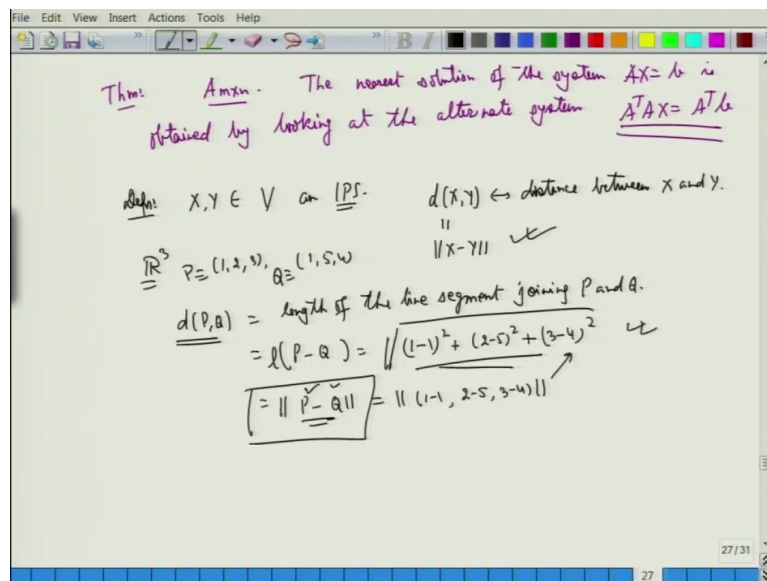 File Edit View Insert Actions Tools Help
Thm: A m×n. The nearest solution of the system AX = b is
obtained by looking at the alternate system AᵀAX = Aᵀb
Defn: X, Y ∈ V an IPS. d(X,Y) ↔ distance between X and Y.
||
||X-Y||
ℝ³ P ≡ (1,2,3), Q ≡ (1,5,4)
d(P,Q) = length of the line segment joining P and Q.
= l(P-Q) = √(1-1)² + (2-5)² + (3-4)²
= ||P-Q|| = ||(1-1, 2-5, 3-4)||
27/31
27